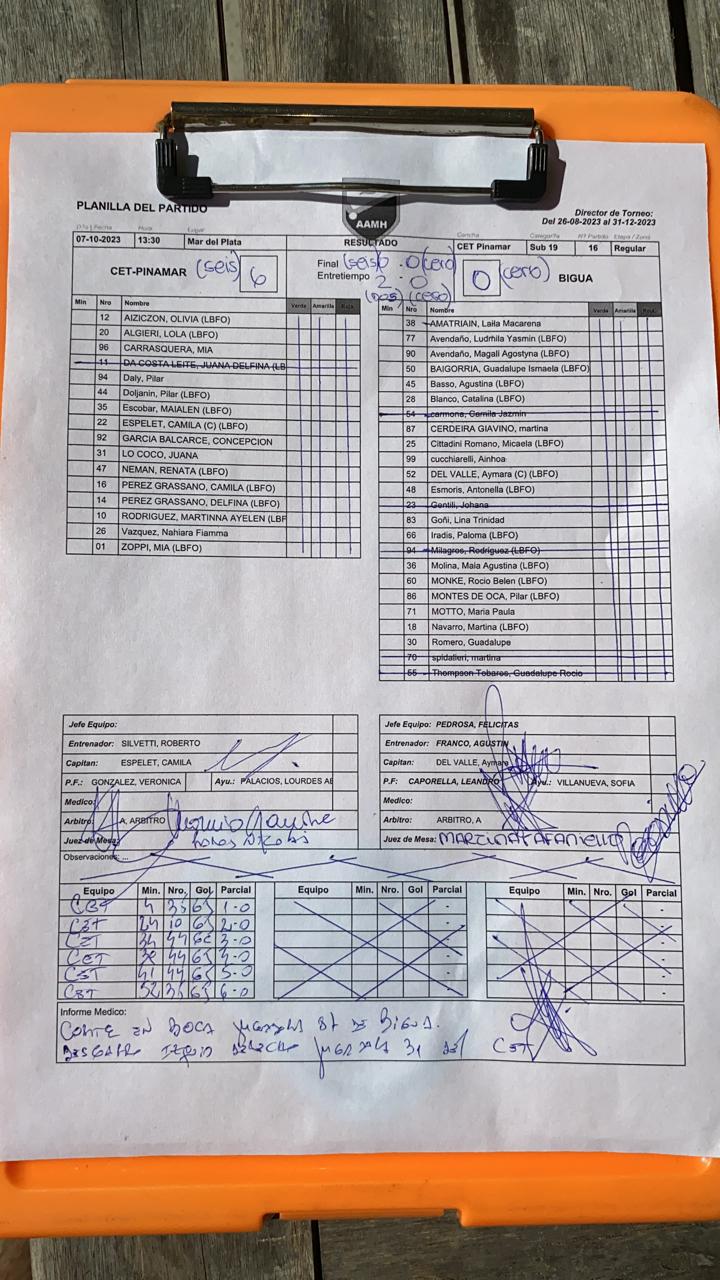 PLANILLA DEL PARTIDO
AAMH
Director de Torneo:
Del 26-08-2023 al 31-12-2023
Hora Lugar RESULTADO Cancha Categoria Nº Partido Etapa / Zona
07-10-2023 13:30 Mar del Plata CET Pinamar Sub 19 16 Regular
CET-PINAMAR (seis) 6 Final (seis) 6 . 0 (cero) 0 (cero) BIGUA
Entretiempo 2 - 0
(DOS) (cero)
Min Nro Nombre Verde Amarilla Roja
12 AIZICZON, OLIVIA (LBFO)
20 ALGIERI, LOLA (LBFO)
96 CARRASQUERA, MIA
11 DA COSTA LEITE, JUANA DELFINA (LB
94 Daly, Pilar
44 Doljanin, Pilar (LBFO)
35 Escobar, MAIALEN (LBFO)
22 ESPELET, CAMILA (C) (LBFO)
92 GARCIA BALCARCE, CONCEPCION
31 LO COCO, JUANA
47 NEMAN, RENATA (LBFO)
16 PEREZ GRASSANO, CAMILA (LBFO)
14 PEREZ GRASSANO, DELFINA (LBFO)
10 RODRIGUEZ, MARTINNA AYELEN (LBF
26 Vazquez, Nahiara Fiamma
01 ZOPPI, MIA (LBFO)
Min Nro Nombre Verde Amarilla Roja
38 AMATRIAIN, Laila Macarena
77 Avendaño, Ludmila Yasmin (LBFO)
90 Avendaño, Magali Agostyna (LBFO)
50 BAIGORRIA, Guadalupe Ismaela (LBFO)
45 Basso, Agustina (LBFO)
28 Blanco, Catalina (LBFO)
54 carmona, Camila Jazmin
87 CERDEIRA GIAVINO, martina
25 Cittadini Romano, Micaela (LBFO)
99 cucchiarelli, Ainhoa
52 DEL VALLE, Aymara (C) (LBFO)
48 Esmoris, Antonella (LBFO)
23 Gentili, Johana
83 Goñi, Lina Trinidad
66 Iradis, Paloma (LBFO)
94 Milagros, Rodriguez (LBFO)
36 Molina, Maia Agustina (LBFO)
60 MONKE, Rocio Belen (LBFO)
86 MONTES DE OCA, Pilar (LBFO)
71 MOTTO, Maria Paula
18 Navarro, Martina (LBFO)
30 Romero, Guadalupe
70 spidalieri, martina
55 Thompson Tobares, Guadalupe Rocio
Jefe Equipo:
Entrenador: SILVETTI, ROBERTO
Capitan: ESPELET, CAMILA
P.F.: GONZALEZ, VERONICA Ayu.: PALACIOS, LOURDES AE
Medico:
Arbitro: A, ARBITRO
Juez de Mesa:
Jefe Equipo: PEDROSA, FELICITAS
Entrenador: FRANCO, AGUSTIN
Capitan: DEL VALLE, Aymara
P.F: CAPORELLA, LEANDRO Ayu.: VILLANUEVA, SOFIA
Medico:
Arbitro: ARBITRO, A
Juez de Mesa: MARTINA
Observaciones: ...
Equipo Min. Nro. Gol Parcial Equipo Min. Nro. Gol Parcial Equipo Min. Nro. Gol Parcial
CET 4 35 1-0
CET 24 10 2-0
CET 34 44 3-0
CET 44 4-0
CET 41 44 5-0
CET 52 35 6-0
Informe Medico:
CORTE EN BOCA 87 DE BIGUA.
DESGARRO DERECHO 31 DEL CET